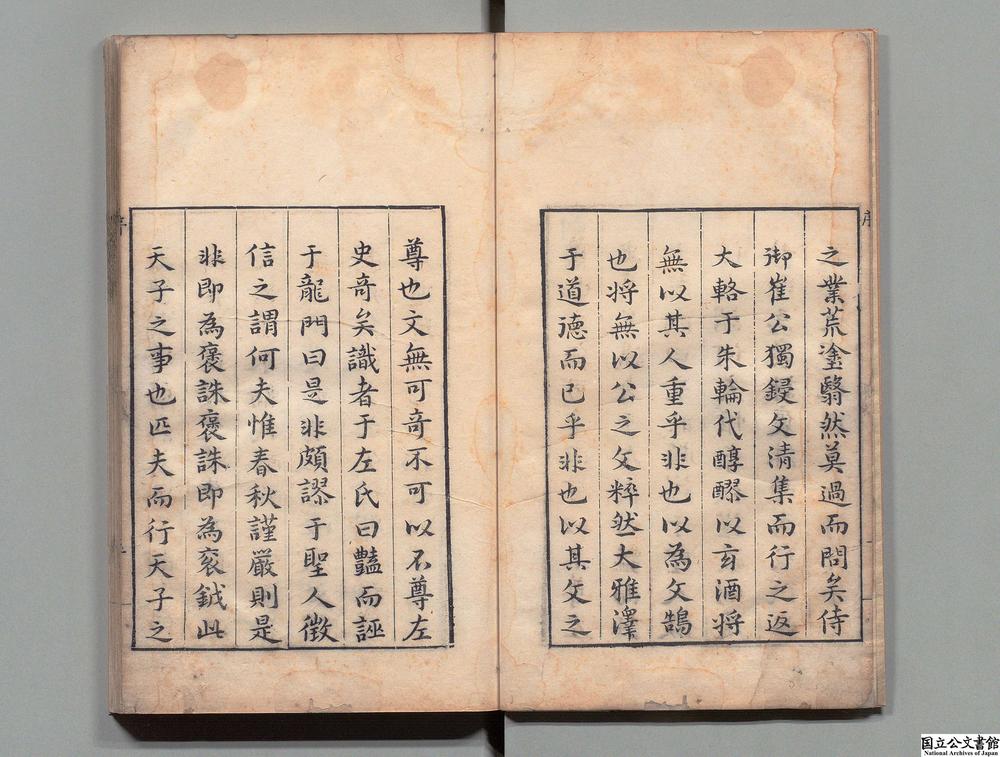 之業荒塗翳然莫過而問矣侍
御崔公獨鋟文清集而行之返
大輅于朱輪代醇醪以玄酒將
無以其人重乎非也以為文鵠
也將無以公之文粹然大雅澤
于道德而已乎非也以其文之
尊也文無可奇不可以不尊左
史奇矣識者于左氏曰豔而誣
于龍門曰是非頗謬于聖人徵
信之謂何夫惟春秋謹嚴則是
非即為褒誅褒誅即為袞鉞此
天子之事也匹夫而行天子之
序
国立公文書館
National Archives of Japan